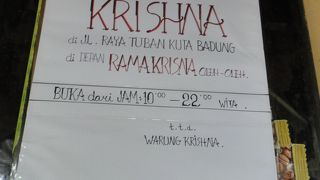 KRISHNA
di JL. RAYA TUBAN KUTA BADUNG
di DEPAN RAMA KRISNA OLEH-OLEH.
BUKA dari JAM: 10°° - 22°° WITA.
t.t.d.
WARUNG KRISHNA.